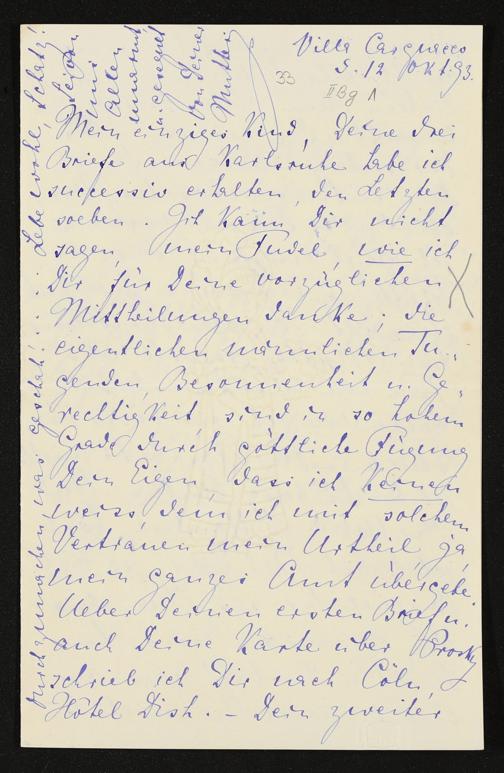 Villa Cargnacco
d. 12 Okt. 93.
33
II Bg 1
Mein einziges Kind, Deine drei
Briefe aus Karlsruhe habe ich
successiv erhalten, den Letzten
soeben. Ich kann Dir nicht
sagen, mein Fudel, wie ich
Dir für Deine vorzüglichen
Mittheilungen danke; die
eigentlichen männlichen Tu-
genden, Besonnenheit u. Ge-
rechtigkeit sind in so hohem
Grade durch göttliche Fügung
Dein Eigen, dass ich Keinen
weiss dem ich mit solchem
Vertrauen mein Urtheil, ja
mein ganzes Amt übergebe
Ueber Deinen ersten Brief u.
auch Deine Karte über
schrieb ich Dir nach Cöln,
Hôtel Dish. – Dein zweiter
durchzumachen was geschah! .... Lebe wohl, Schatz!
Sei von
uns
Allen
umarmt
u. gesegnet
von Deiner
Mutter